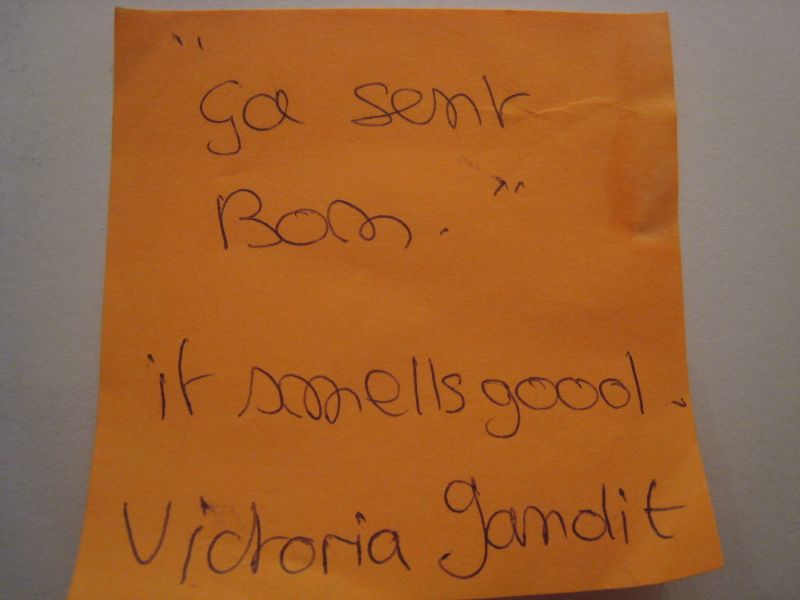 "Ça sent
Bon."
it smells good.
Victoria Gandit